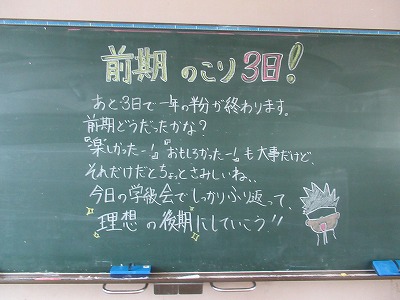 前期 のこり 3日!
あと3日で一年の半分が終わります。
前期どうだったかな?
『楽しかったー!』『おもしろかったー!』も大事だけど、
それだけだとちょっとさみしいね、、
今日の学級会でしっかりふり返って、
理想の後期にしていこう!!